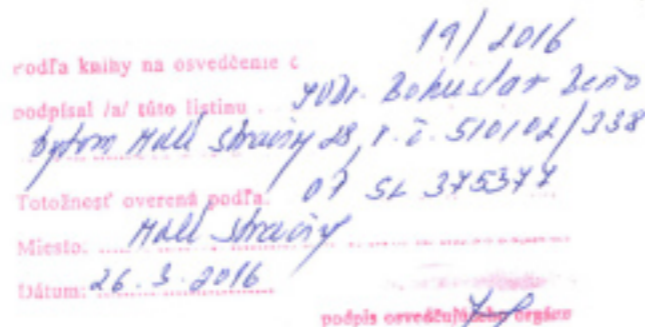 Podľa knihy na osvedčenie č 19/2016
podpísal /a/ túto listinu . JUDr. Bohuslav Beňo
bytom Malé Straciny 28, r.č. 510102/338
Totožnosť overená podľa. OP SL 375377
Miesto: Malé Straciny
Dátum: 26.3.2016
podpis osvedčujúceho orgánu